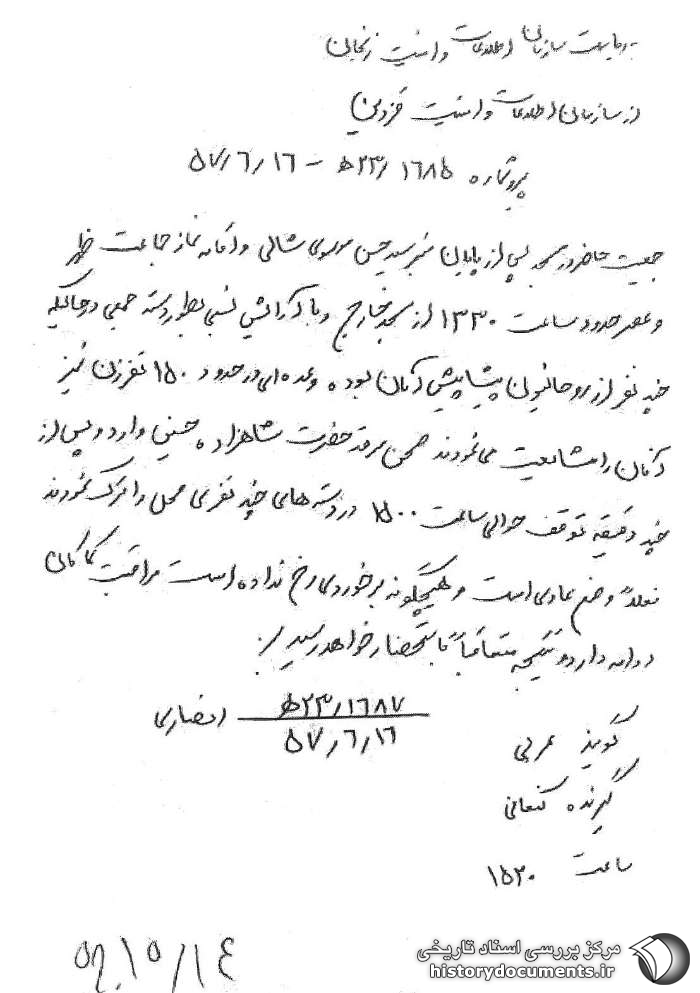 بریاست سازمان اطلاعات و امنیت زنجان
از سازمان اطلاعات و امنیت قزوین
پیرو شماره ۱۶۸۵/۲۳ه‍ - ۵۷/۶/۱۶
جمعیت حاضر در مسجد پس از پایان منبر سید حسن موسوی شالی و اقامه نماز جماعت ظهر
و عصر حدود ساعت ۱۳۳۰ از مسجد خارج و با آرامش نسبی بطور دسته جمعی در حالیکه
چند نفر از روحانیون پیشاپیش آنان بوده و عده‌ای در حدود ۱۵۰ نفر زن نیز
آنان را مشایعت می‌نمودند صحن مرقد حضرت شاهزاده حسین وارد و پس از
چند دقیقه توقف حوالی ساعت ۱۵۰۰ در دسته‌های چند نفری محل را ترک نمودند
فعلاً وضع عادی است و هیچگونه برخوردی رخ نداده است مراقبت کماکان
ادامه دارد و نتیجه متعاقباً باستحضار خواهد رسید /.
۱۶۸۷/۲۳ه‍ انصاری
۵۷/۶/۱۶
گوینده عربی
گیرنده کنعانی
ساعت ۱۵۲۰
۵۲۱۵/۱۴
مرکز بررسی اسناد تاریخی
historydocuments.ir